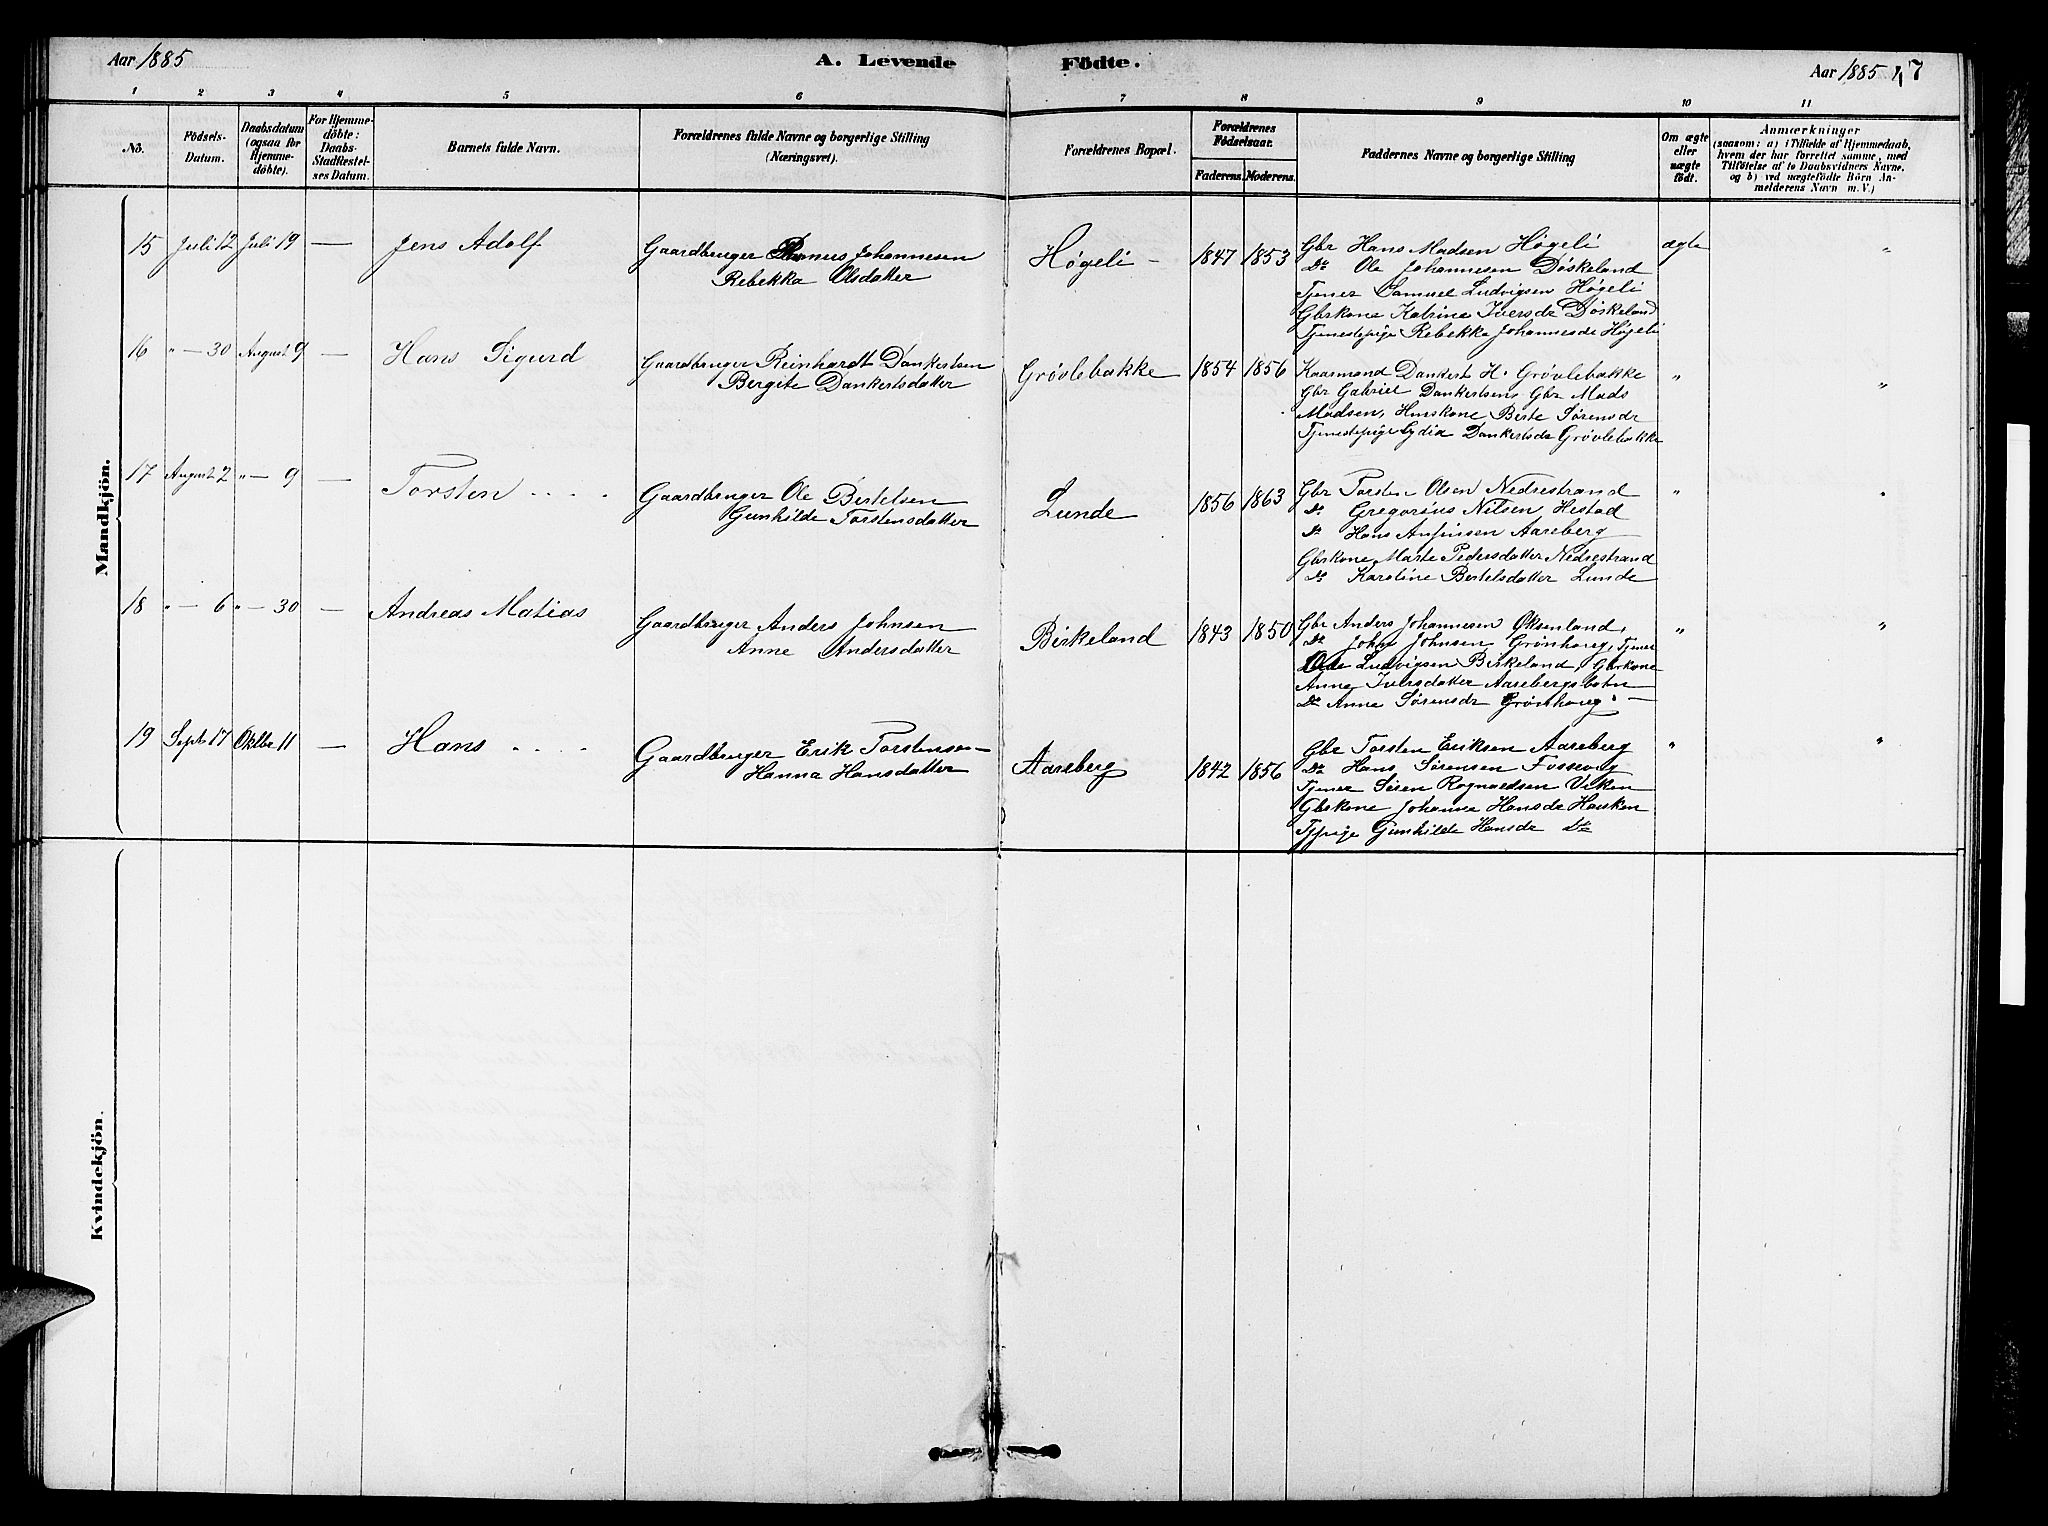 Aar 1885
A. Levende Födte.
Aar 1885 47
1 2 3 4 5 6 7 8 9 10 11
No.
Födsels-Datum.
Daabsdatum (ogsaa for Hjemme-döbte).
For Hjemme-döbte: Daabs-Stadfæstel-ses Datum.
Barnets fulde Navn.
Forældrenes fulde Navne og borgerlige Stilling (Næringsvei).
Forældrenes Bopæl.
Forældrenes Födselsaar.
Faderens. Moderens.
Faddernes Navne og borgerlige Stilling
Om ægte eller uægte födt.
Anmærkninger
(saasom: a) i Tilfælde af Hjemmedaab,
hvem der har forrettet samme, med
Tilföielse af to Daabsvidners Navne,
og b) ved uægtefödte Börn An-
melderens Navn m. V.)
Mandkjön.
15 Juli 12 Juli 19 — Jens Adolf
Gaardbruger Johannesen
Rebekka Olsdatter
Høgeli – 1847 1853
Gbr Hans Madsen Høgeli
Do Ole Johannesen Döskeland
Tjener Samuel Ludvigsen Høgeli
Gbrkone Katrine Iversdr Döskeland
Tjenestepige Rebekka Johannesdr Høgeli
ægte "
16 " — 30 August 9 — Hans Sigurd
Gaardbruger Reinhardt Dankertsen
Bergite Dankertsdatter
Grövlebakke 1854 1856
Kaarmand Dankert H. Grövlebakke
Gbr Gabriel Dankertsen, Gbr Mads
Madsen, Huskone Berte Sörensdr
Tjenestepige Lydia Dankertsdr Grövlebakke
" "
17 August 2 " — 9 — Torsten . . . .
Gaardbruger Ole Bertelsen
Gunhilde Torstensdatter
Lunde 1856 1863
Gbr Torsten Olsen Nedrestrand
Do Gregorius Nilsen Hestad
Do Hans Anfinsen Aareberg
Gbrkone Marte Pedersdatter Nedrestrand
Do Karoline Bertelsdatter Lunde
" "
18 " — 6 " — 30 — Andreas Matias
Gaardbruger Anders Johnsen
Anne Andersdatter
Birkeland 1843 1850
Gbr Anders Johannesen Oksenland,
Do John Johnsen Grönhaug, Tjener
Ole Ludvigsen Birkeland, Gbrkone
Anne Iversdatter Aarebergsbotn
Do Anne Sörensdr Grönhaug. —
" "
19 Septb 17 Oktbr 11 — Hans . . . .
Gaardbruger Erik Torstensen
Hanna Hansdatter
Aareberg 1842 1856
Gbr Torsten Eriksen Aareberg
Do Hans Sörensen Fossevig
Tjener Sören Rognaldsen Viken
Gbrkone Johanna Hansdr Hauken
Tjpige Gunhilde Hansdr Do
" "
Kvindekjön.